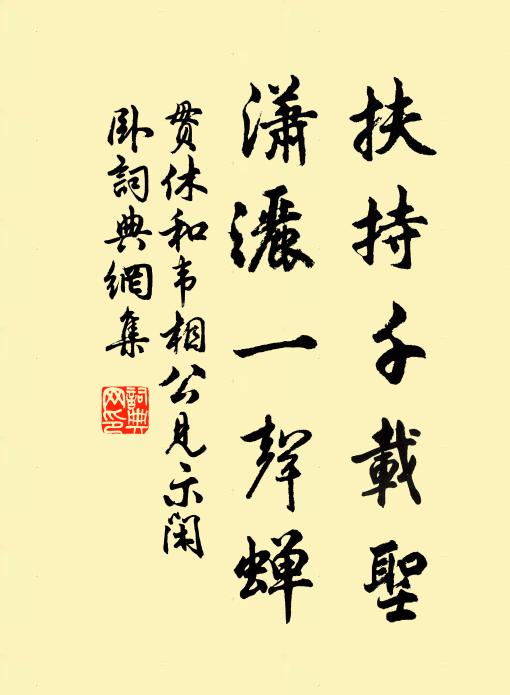 扶持千載聖
瀟灑一聲蟬
贯休和韦相公見示閑
卧詞典網集
詞典
网印